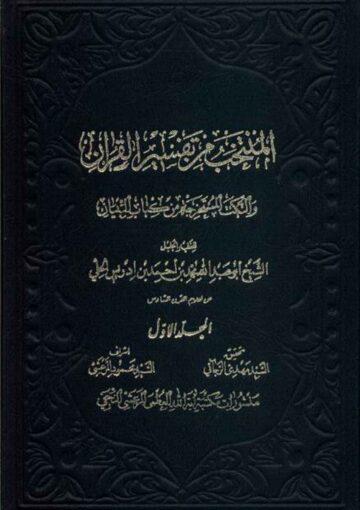 المنتخب من تفسير القرآن
والنكت المستخرجة من كتاب التبيان
للفقيه الجليل
الشيخ ابي عبد الله محمد بن احمد بن ادريس الحلي
من اعلام القرن السادس
المجلد الاول
تحقيق
السيد مهدي الرجائي
اشراف
السيد محمود المرعشي
منشورات مكتبة آية الله العظمى المرعشي النجفي